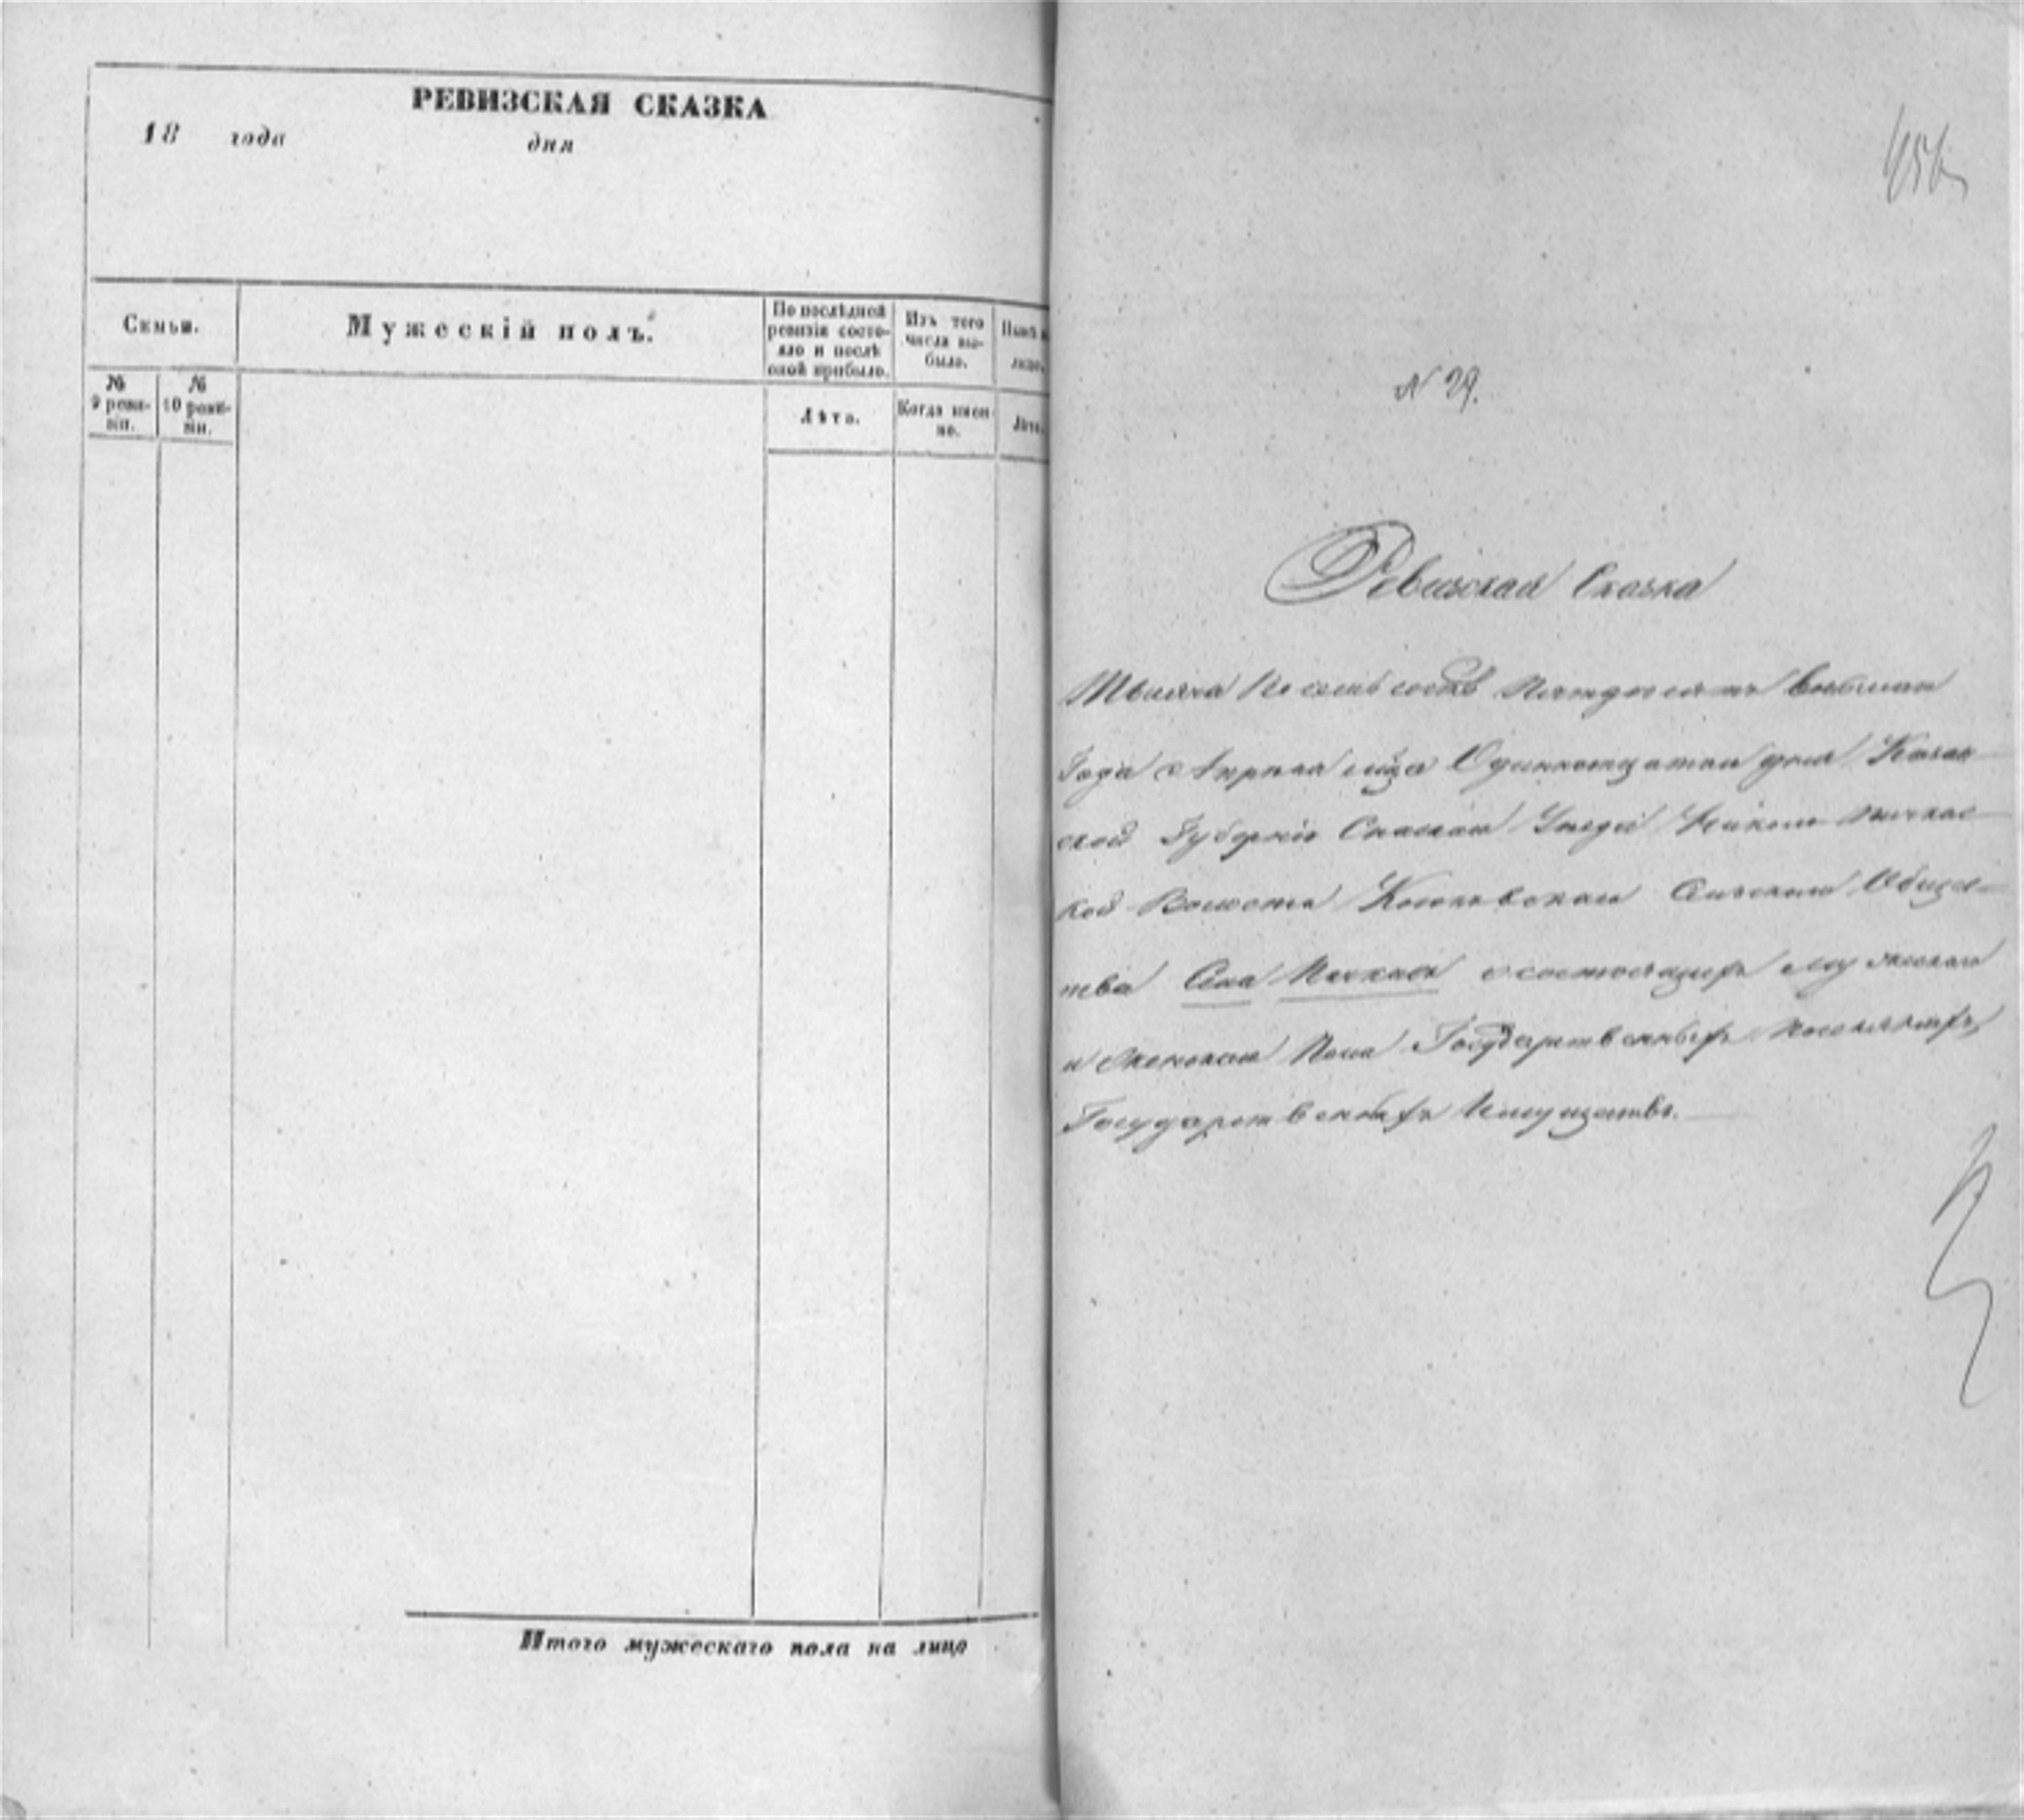 РЕВИЗСКАЯ СКАЗКА
18 года дня
Семьи.
Мужескій полъ.
По послѣдней ревизіи состояло и послѣ оной прибыло.
Изъ того числа выбыло.
№ 9 ревизіи.
№ 10 ревизіи.
Лѣта.
Когда именно.
Лѣта.
Итого мужескаго пола на лицо
456
№ 29.
Ревизская Сказка
Тысяча Восемьсотъ Пятьдесятъ восьмаго
Года Апрѣля мца Одинадцатаго дня Казан
ской Губерніи Спаскаго Уезда
кой Волости Сельскаго Общес
тва Села о состоящихъ мужескаго
и Женскаго Пола Государственныхъ
Государственныхъ Имуществъ.